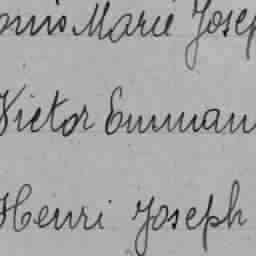 ouis Marie Josep
Victor Emman
Henri Joseph